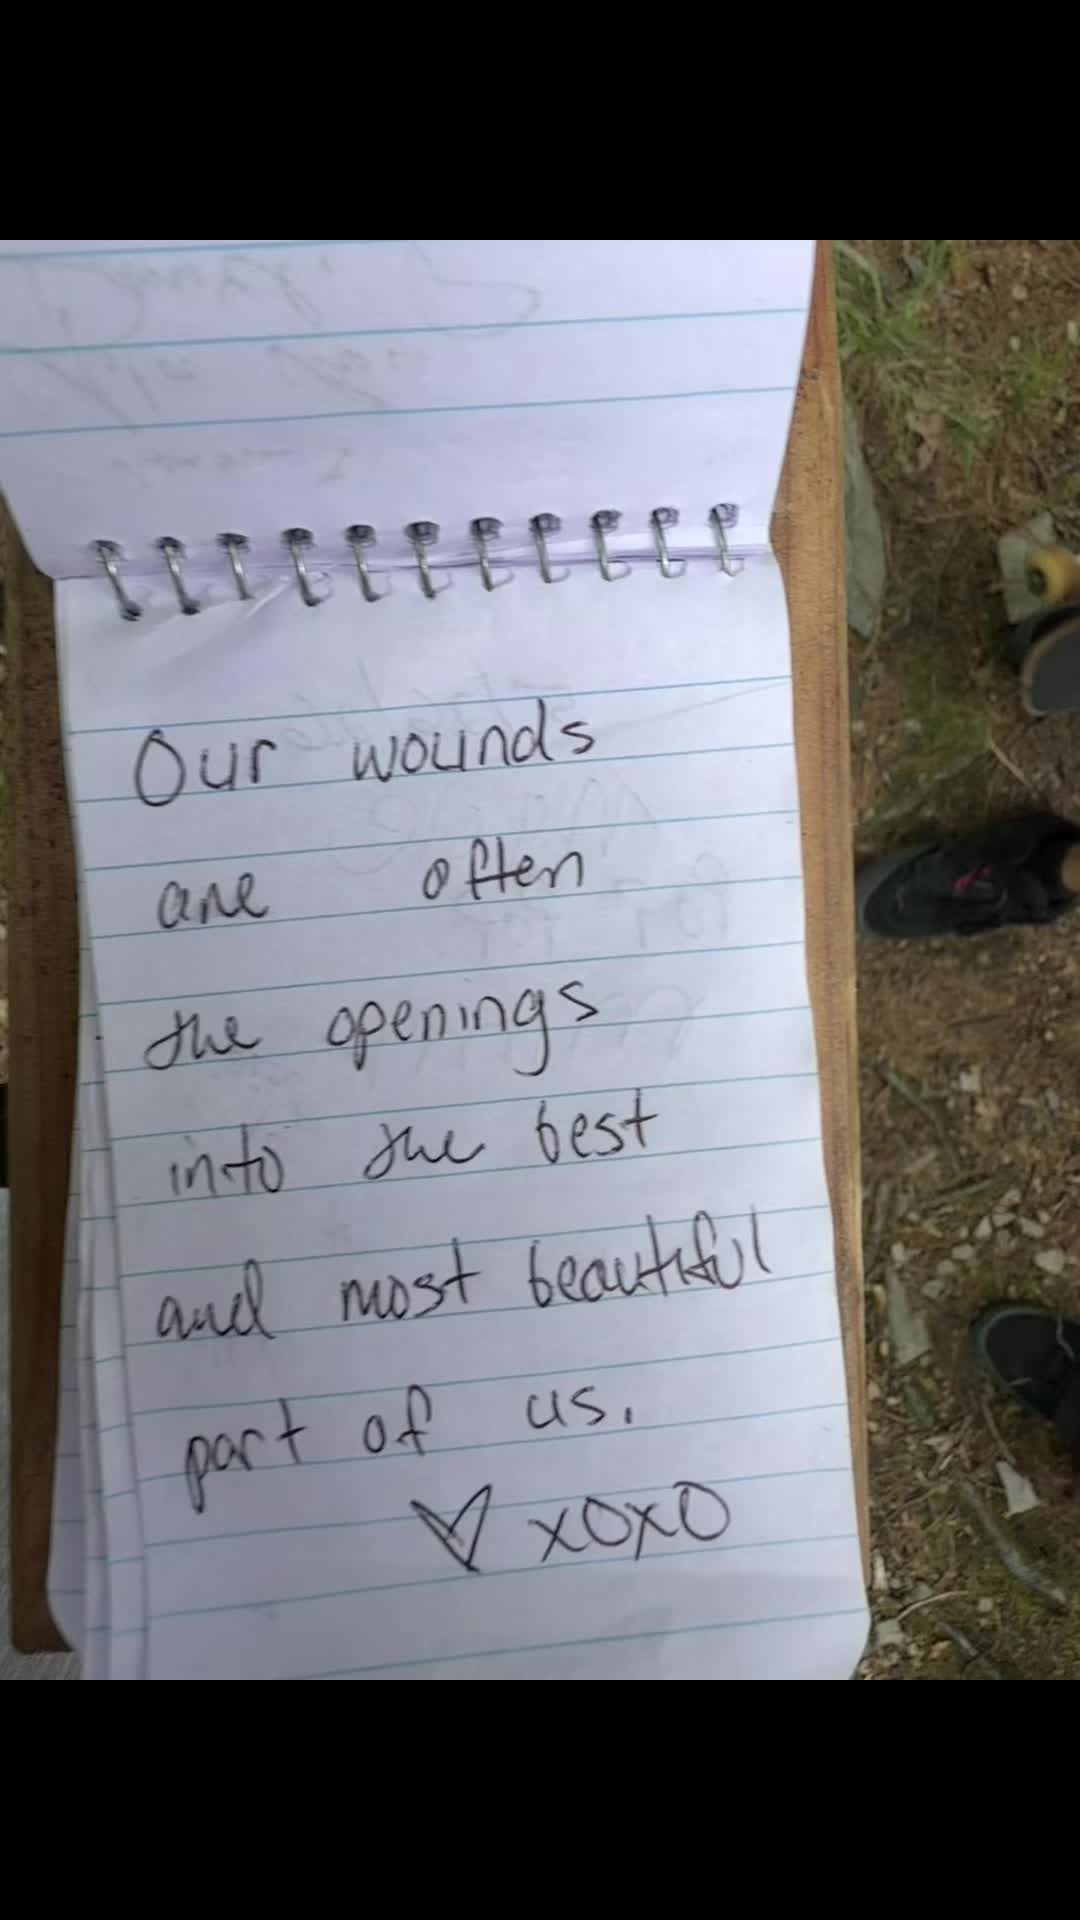 Our wounds
are often
the openings
into the best
and most beautiful
part of us.
♡ xoxo